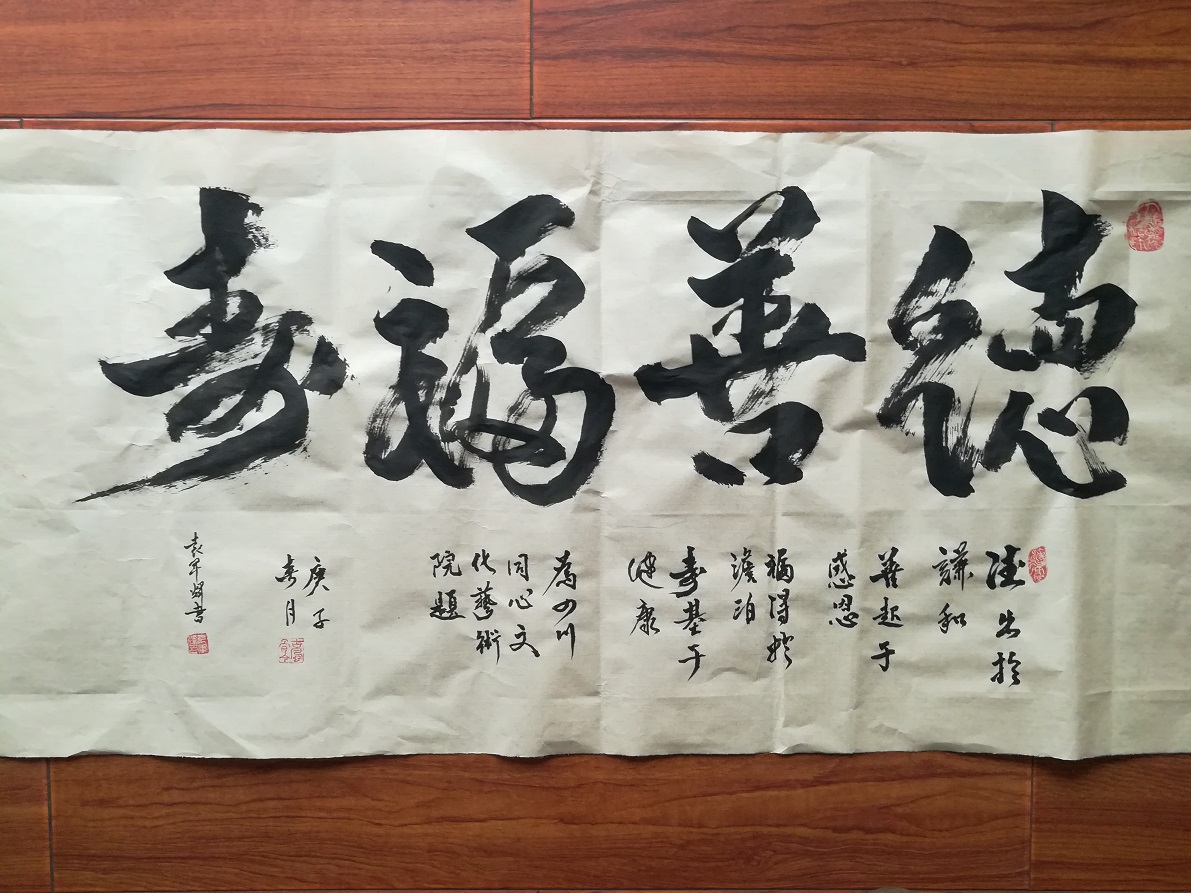 德善福寿
德出於
谦和
善起于
感恩
福得於
澹泊
寿基于
健康
為四川
同心文
化藝術
院題
庚子
春月
书